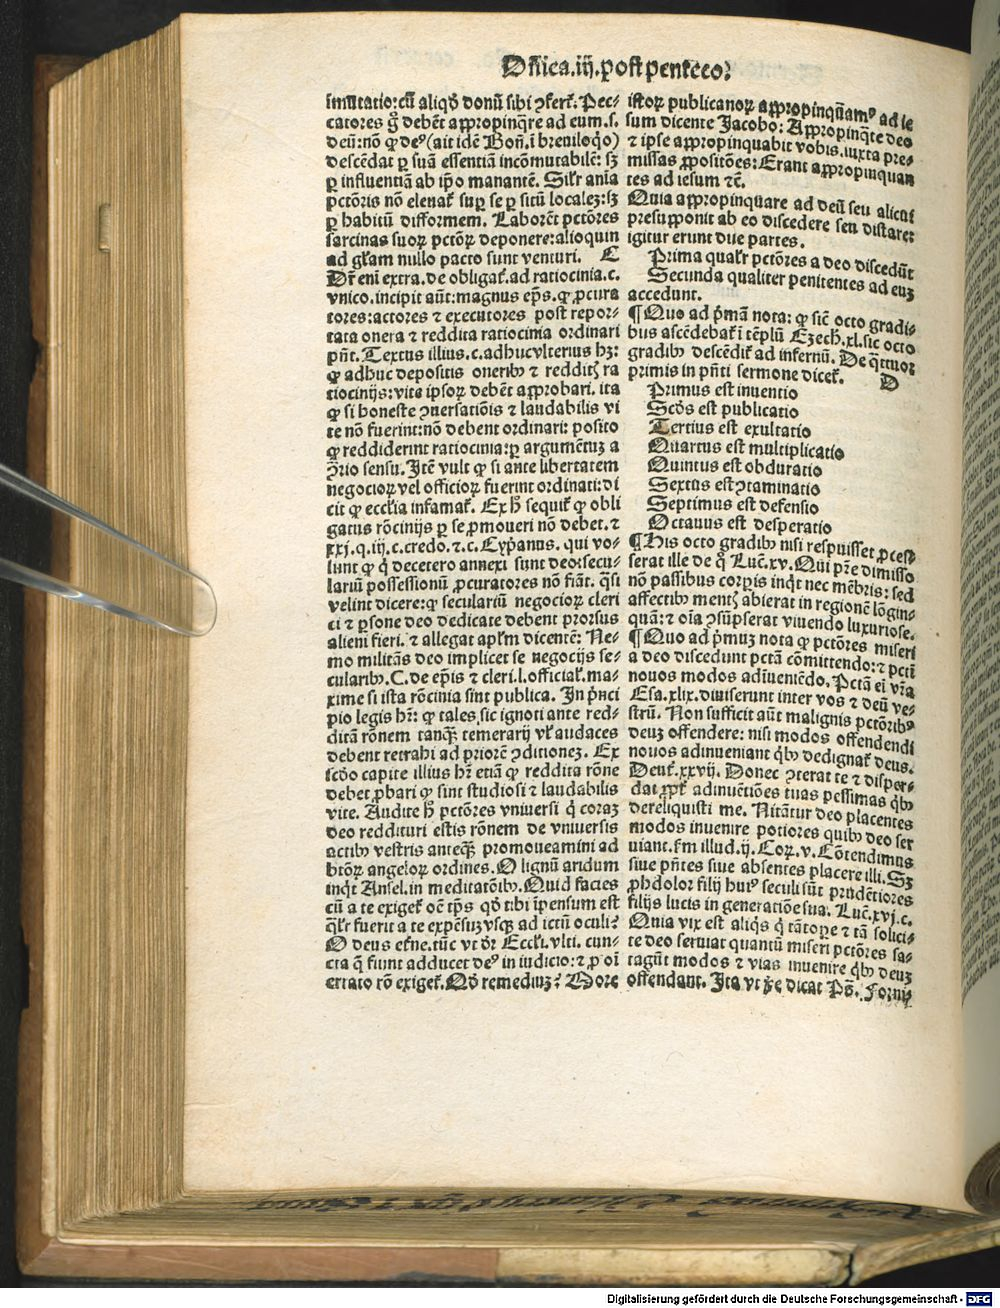 Dn̄ica.iij.post penteco⁊
imutatio: cū aliqđ donū sibi ɔfert̄. Pec-
catores g̊ debēt appropinq̄re ad eum.s.
deū: nō ꝙ deꝰ (ait idē Boñ.ī breuiloq̊)
descēdat ꝑ suā essentiā incōmutabilē: sꝫ
ꝑ influentiā ab ip̄o manantē. Sil̄r anīa
pctōris nō eleuat̄ suꝑ se ꝑ sitū localeꝫ: sꝫ
ꝑ habitū difformem. Laborēt pctōres
sarcinas suoꝝ pctōꝝ deponere: alioquin
ad gl̄am nullo pacto sunt venturi. C
Dr̄ em̄ extra.de obligat̄.ad ratiocinia.c.
vnico.incipit aūt: magnus ep̄s.ꝙ ꝓcura
tores: actores ⁊ executores post repor-
tata onera ⁊ reddita ratiocinia ordinari
pn̄t. Textus illius.c.adhuc vlterius hꝫ:
ꝙ adhuc depositis oneribꝰ ⁊ redditꝭ ra
tiocinijs: vite ipsoꝝ debēt approbari. ita
ꝙ si honeste ɔuersatiōis ⁊ laudabilis vi
te nō fuerint: nō debent ordinari: posito
ꝙ reddiderint ratiocinia: ꝑ argumētuꝫ a
ɔ̄rio sensu. Itē vult ꝙ si ante libertatem
negocioꝝ vel officioꝝ fuerint ordinati: di
cit ꝙ eccl̄ia infamat̄. Ex h̄ sequit̄ ꝙ obli
gatus rōcinijs ꝑ se ꝓmoueri nō debet. ⁊
xxj.q.iij.c.credo.⁊.c. Cyp̄anus. qui vo-
lunt ꝙ q̇ decetero annexi sunt deo: secu-
lariū possessionū ꝓcuratores nō fiāt. q̄si
velint dicere: ꝙ seculariū negocioꝝ cleri
ci ⁊ ꝑsone deo dedicate debent prorsus
alieni fieri. ⁊ allegat apl̄m dicentē: Ne-
mo militās deo implicet se negocijs se-
cularibꝰ. C. de ep̄is ⁊ cleri.l.officiat̄.ma-
xime si ista rōcinia sint publica. In p̄nci
pio legis hr̄: ꝙ tales sic ignoti ante red-
ditā rōnem tanqꝫ temerarij vl̄ audaces
debent retrahi ad priorē ɔditioneꝫ. Ex
scd̄o capite illius hr̄ etiā ꝙ reddita rōne
debet ꝓbari ꝙ sint studiosi ⁊ laudabilis
vite. Audite h̄ pctōres vniuersi q̇ coraꝫ
deo reddituri estis rōnem de vniuersis
actibꝰ vestris anteqꝫ promoueamini ad
btōꝝ angeloꝝ ordines. O lignū aridum
inq̇t Ansel.in meditatōibꝰ. Quid facies
cū a te exiget̄ oē tp̄s qđ tibi īpensum est
q̄l̄r fuerit a te expēsuꝫ vsqꝫ ad ictū oculi?
O deus et̄ne. tūc vt dr̄ Eccl̄i.vlti. cun-
cta q̄ fiunt adducet deꝰ in iudicio: ⁊ ꝓ oī
errato rō exiget̄. Qđ remediuꝫ? More
istoꝝ publicanoꝝ appropinq̄amꝰ ad ie
sum dicente Jacobo: Appropinq̄te deo
⁊ ipse appropinquabit vobis. iuxta pre-
missas ꝓpositōes: Erant appropinquan
tes ad iesum ⁊c̄.
Quia appropinquare ad deū seu alicui
presupponit ab eo discedere seu distare:
igitur erunt due partes.
Prima qual̄r pctōres a deo discedūt
Secunda qualiter penitentes ad euꝫ
accedunt.
¶ Quo ad p̄mā nota: ꝙ sic̄ octo gradi-
bus ascēdebat̄ ī tēplū Ezech.xl. sic octo
gradibꝰ descēdit̄ ad infernū. De q̄ttuor
primis in pn̄ti sermone dicet̄. D
Primus est inuentio
Scđs est publicatio
Tertius est exultatio
Quartus est multiplicatio
Quintus est obduratio
Sextus est ɔtaminatio
Septimus est defensio
Octauus est desperatio
¶ His octo gradibꝰ nisi respuisset ꝓces-
serat ille de q̊ Luc̄.xv. Qui pr̄e dimisso
nō passibus corpis inq̇t nec mēbris: sed
affectibꝰ mentꝭ abierat in regionē lōgin-
quā: ⁊ oīa ɔsūpserat viuendo luxuriose.
¶ Quo ad p̄muꝫ nota ꝙ pctōres miseri
a deo discedunt pctā cōmittendo: ⁊ pcti
nouos modos adiuueniēdo. Pctā em̄ vr̄a
Esa.xlix. diuiserunt inter vos ⁊ deū ve-
strū. Non sufficit aūt malignis pctōribꝰ
deuꝫ offendere: nisi modos offendendi
nouos adinueniant q̇bꝰ dedignat̄ deus.
Deut̄.xxvij. Donec ɔterat te ⁊ disper-
dat ꝓpt̄ adinuētiōes tuas pessimas q̇bꝰ
dereliquisti me. Nitūtur deo placentes
modos inuenire potiores quibꝰ deo ser
uiant. fm illud.ij. Coꝝ.v. Cōtendimus
siue pn̄tes siue absentes placere illi. Sꝫ
ꝓhdolor filij huiꝰ seculi sūt prudētiores
filijs lucis in generatiōe sua. Luc̄.xvj.c.
Quia vix est aliq̇s q̇ tātoꝑe ⁊ tā solici-
te deo seruiat quantū miseri pctōres sa-
tagūt modos ⁊ vias inuenire q̇bꝰ deuꝫ
offendant. Ita vt ꝟe dicat Pō. Forni
Digitalisierung gefördert durch die Deutsche Forschungsgemeinschaft - DFG